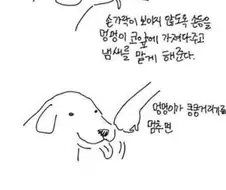 손가락이 보이지 않도록 손등을
멍멍이 코앞에 가져다주고
냄새를 맡게 해준다.
멍멍이가 킁킁거리기를
멈추면